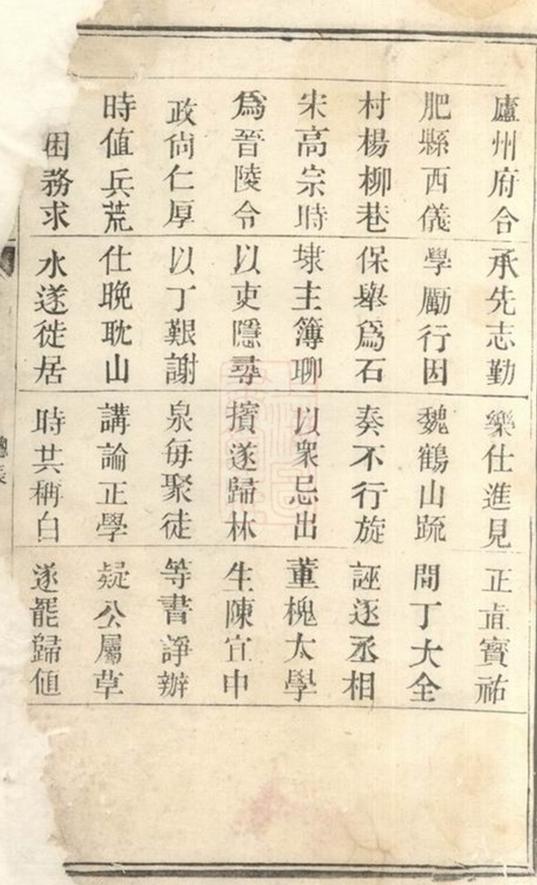 廬州府合
肥縣西儀
村楊柳巷
宋高宗時
爲晉陵令
政尙仁厚
時值兵荒
困務求
承先志勤
學勵行因
保舉爲石
埭主簿聊
以吏隱尋
以丁艱謝
仕晚耽山
水遂徙居
樂仕進見
魏鶴山疏
奏不行旋
以衆忌出
擯遂歸林
泉每聚徒
講論正學
時共稱白
正直寶祐
間丁大全
誣逐丞相
董槐太學
生陳宜中
等書諍辦
疑公屬草
遂罷歸値